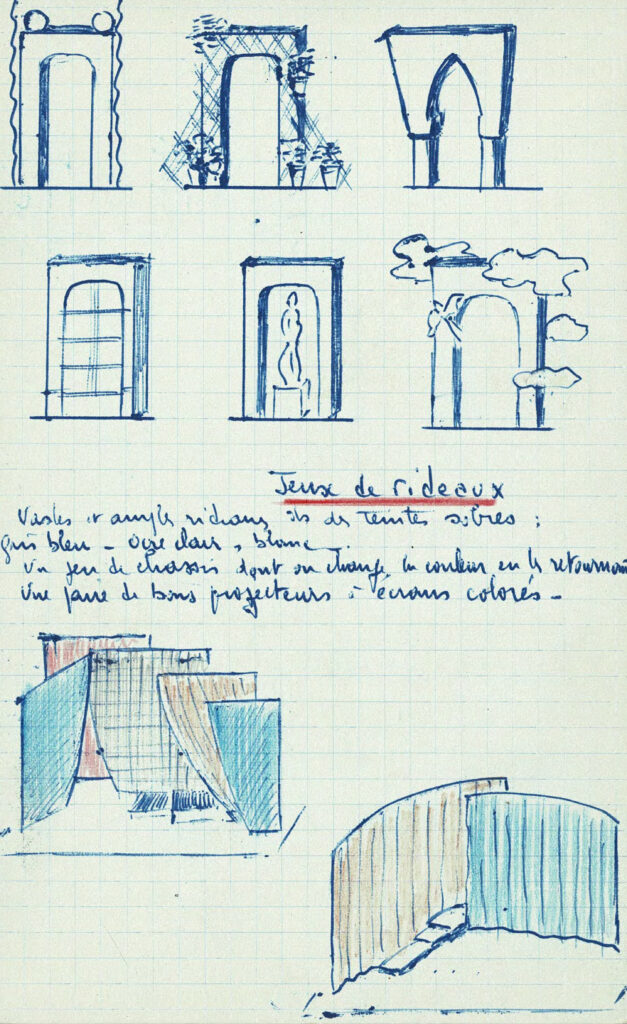 Jeux de rideaux
Vastes et amples rideaux, de teintes sobres :
gris bleu - clair, blanc
Un jeu de chassis dont on change la couleur en les retournant
Une paire de bons projecteurs à écrans colorés -